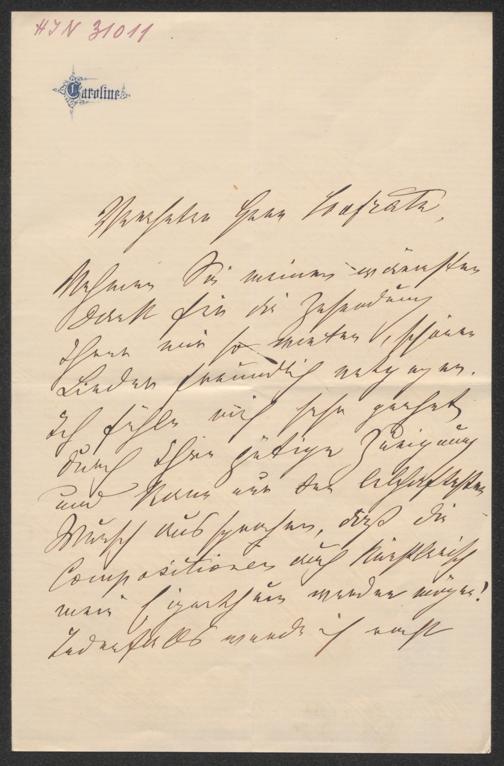 HIN 31011
Caroline
Verehrter Herr Hofrath,
Nehmen Sie meinen wärmsten
Dank für die Zusendung
Ihrer mir so werten, schönen
Lieder freundlich entgegen.
Ich fühle mich sehr geehrt
durch Ihre gütige Zueignung
und kann nur den lebhaftesten
Wunsch aussprechen, daß die
Compositionen auch künstlerisch
mein Eigenthum werden mögen!
Jedenfalls werde ich recht